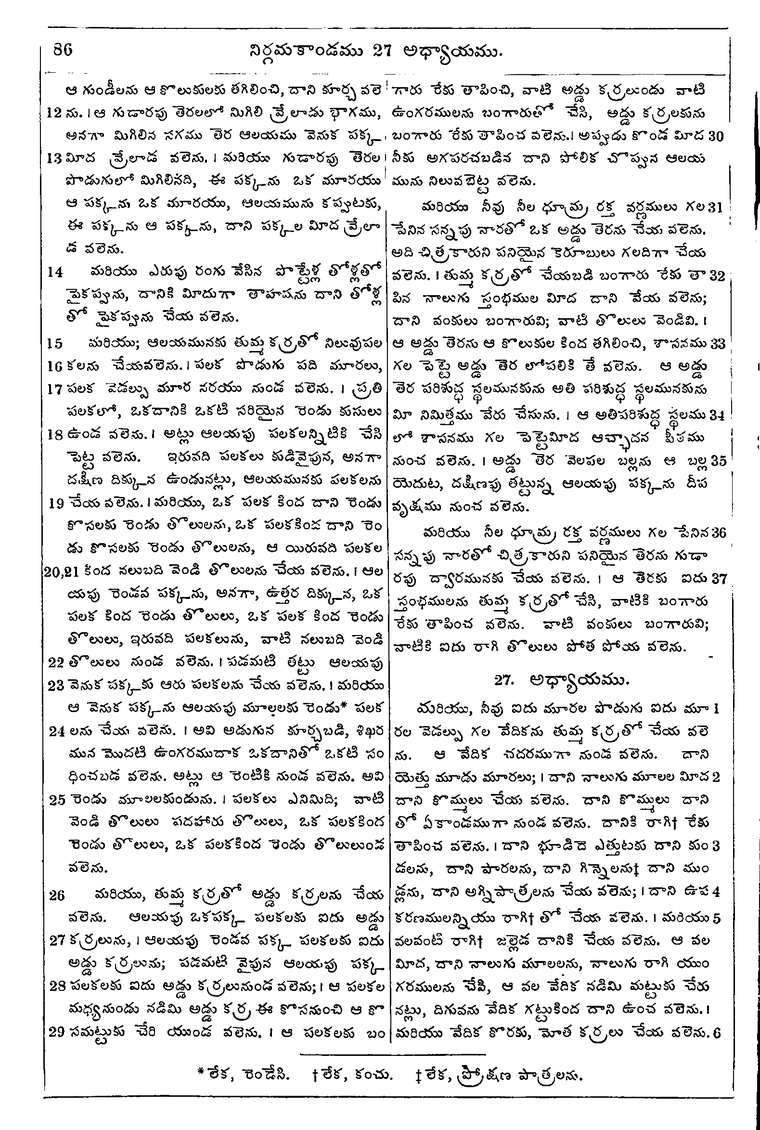 86 నిర్గమకాండము 27 అధ్యాయము.
ఆ గుండీలను ఆ కొలుకులకు తగిలించి, దాని కూర్చ వలె
12 ను. । ఆ గుడారపు తెరలలో మిగిలి వ్రేలాడు భాగము,
అనగా మిగిలిన సగము తెర ఆలయము వెనుక పక్క
13 మీద వ్రేలాడ వలెను. । మరియు గుడారపు తెరల
పొడుగులో మిగిలినది, ఈ పక్కను ఒక మూరయు
ఆ పక్కను ఒక మూరయు, ఆలయమును కప్పుటకు,
ఈ పక్కను ఆ పక్కను, దాని పక్కల మీద వ్రేలా
డ వలెను.
14 మరియు ఎరుపు రంగు వేసిన పొట్టేళ్ల తోళ్లతో
పైకప్పును, దానికి మీదుగా తాహషను దాని తోళ్ల
తో పైకప్పును చేయ వలెను.
15 మరియు; ఆలయమునకు తుమ్మ కర్రతో నిలువుపల
16 కలను చేయవలెను. । పలక పొడుగు పది మూరలు,
17 పలక వెడల్పు మూర నరయు నుండ వలెను. । ప్రతి
పలకలో, ఒకదానికి ఒకటి సరియైన రెండు కుసులు
18 ఉండ వలెను. । అట్లు ఆలయపు పలకలన్నిటికి చేసి
పెట్ట వలెను. ఇరువది పలకలు కుడివైపున, అనగా
దక్షిణ దిక్కున ఉండునట్లు, ఆలయమునకు పలకలను
19 చేయ వలెను. । మరియు, ఒక పలక కింద దాని రెండు
కొసలకు రెండు తొలులను, ఒక పలకకింద దాని రెం
డు కొసలకు రెండు తొలులను, ఆ యిరువది పలకల
20,21 కింద నలుబది వెండి తొలులను చేయ వలెను. । ఆల
యపు రెండవ పక్కను, అనగా, ఉత్తర దిక్కున, ఒక
పలక కింద రెండు తొలులు, ఒక పలక కింద రెండు
తొలులు, ఇరువది పలకలును, వాటి నలుబది వెండి
22 తొలులు నుండ వలెను. । పడమటి తట్టు ఆలయపు
23 వెనుక పక్కకు ఆరు పలకలను చేయ వలెను. । మరియు
ఆ వెనుక పక్కను ఆలయపు మూలలకు రెండు* పలక
24 లను చేయ వలెను. । అవి అడుగున కూర్చబడి, శిఖర
మున మొదటి ఉంగరముదాక ఒకదానితో ఒకటి సం
ధించబడ వలెను. అట్లు ఆ రెంటికి నుండ వలెను. అవి
25 రెండు మూలలకుండును. । పలకలు ఎనిమిది; వాటి
వెండి తొలులు పదహారు తొలులు, ఒక పలకకింద
రెండు తొలులు, ఒక పలకకింద రెండు తొలులుండ
వలెను.
26 మరియు, తుమ్మ కర్రతో అడ్డు కర్రలను చేయ
వలెను. ఆలయపు ఒకపక్క పలకలకు ఐదు అడ్డు
27 కర్రలును, । ఆలయపు రెండవ పక్క పలకలకు ఐదు
అడ్డు కర్రలును; పడమటి వైపున ఆలయపు పక్క
28 పలకలకు ఐదు అడ్డు కర్రలునుండ వలెను; । ఆ పలకల
మధ్యనుండు నడిమి అడ్డు కర్ర ఈ కొసనుంచి ఆ కొ
29 సమట్టుకు చేరి యుండ వలెను. । ఆ పలకలకు బం
గారు రేకు తాపించి, వాటి అడ్డు కర్రలుండు వాటి
ఉంగరములను బంగారుతో చేసి, అడ్డు కర్రలకును
బంగారు రేకు తాపించ వలెను. । అప్పుడు కొండ మీద 30
నీకు అగపరచబడిన దాని పోలిక చొప్పున ఆలయ
మును నిలువబెట్ట వలెను.
మరియు నీవు నీల ధూమ్ర రక్త వర్ణములు గల 31
పేనిన సన్నపు నారతో ఒక అడ్డు తెరను చేయ వలెను.
అది చిత్రకారుని పనియైన కెరూబులు గలదిగా చేయ
వలెను. । తుమ్మ కర్రతో చేయబడి బంగారు రేకు తా 32
పిన నాలుగు స్తంభముల మీద దాని వేయ వలెను;
దాని వంకులు బంగారువి; వాటి తొలులు వెండివి. ।
ఆ అడ్డు తెరను ఆ కొలుకుల కింద తగిలించి, శాసనము 33
గల పెట్టె అడ్డు తెర లోపలికి తే వలెను. ఆ అడ్డు
తెర పరిశుద్ధ స్థలమునకును అతి పరిశుద్ధ స్థలమునకును
మీ నిమిత్తము వేరు చేసును. । ఆ అతిపరిశుద్ధ స్థలము 34
లో శాసనము గల పెట్టెమీద ఆచ్ఛాదన పీఠము
నుంచ వలెను. । అడ్డు తెర వెలపల బల్లను ఆ బల్ల 35
యెదుట, దక్షిణపు తట్టున్న ఆలయపు పక్కను దీప
వృక్షము నుంచ వలెను.
మరియు నీల ధూమ్ర రక్త వర్ణములు గల పేనిన 36
సన్నపు నారతో చిత్రకారుని పనియైన తెరను గుడా
రపు ద్వారమునకు చేయ వలెను. । ఆ తెరకు ఐదు 37
స్తంభములను తుమ్మ కర్రతో చేసి, వాటికి బంగారు
రేకు తాపించ వలెను. వాటి వంకులు బంగారువి;
వాటికి ఐదు రాగి తొలులు పోత పోయ వలెను.
27. అధ్యాయము.
మరియు, నీవు ఐదు మూరల పొడుగు ఐదు మూ 1
రల వెడల్పు గల వేదికను తుమ్మ కర్రతో చేయ వలె
ను. ఆ వేదిక చదరముగా నుండ వలెను. దాని
యెత్తు మూడు మూరలు; । దాని నాలుగు మూలల మీద 2
దాని కొమ్ములు చేయ వలెను. దాని కొమ్ములు దాని
తో ఏకాండముగా నుండ వలెను. దానికి రాగి† రేకు
తాపించ వలెను. । దాని భూడిదె ఎత్తుటకు దాని కుం 3
డలను, దాని పారలను, దాని గిన్నెలను‡ దాని ముం
డ్లను, దాని అగ్నిపాత్రలను చేయ వలెను; । దాని ఉప 4
కరణములన్నియు రాగి† తో చేయ వలెను. । మరియు 5
వలవంటి రాగి† జల్లెడ దానికి చేయ వలెను. ఆ వల
మీద, దాని నాలుగు మూలలను, నాలుగు రాగి యుం
గరములను చేసి, ఆ వల వేదిక నడిమి మట్టుకు చేరు
నట్లు, దిగువను వేదిక గట్టుకింద దాని ఉంచ వలెను. ।
మరియు వేదిక కొరకు, మోత కర్రలు చేయ వలెను. 6
*లేక, రెండేసి. †లేక, కంచు. ‡లేక, ప్రోక్షణ పాత్రలను.